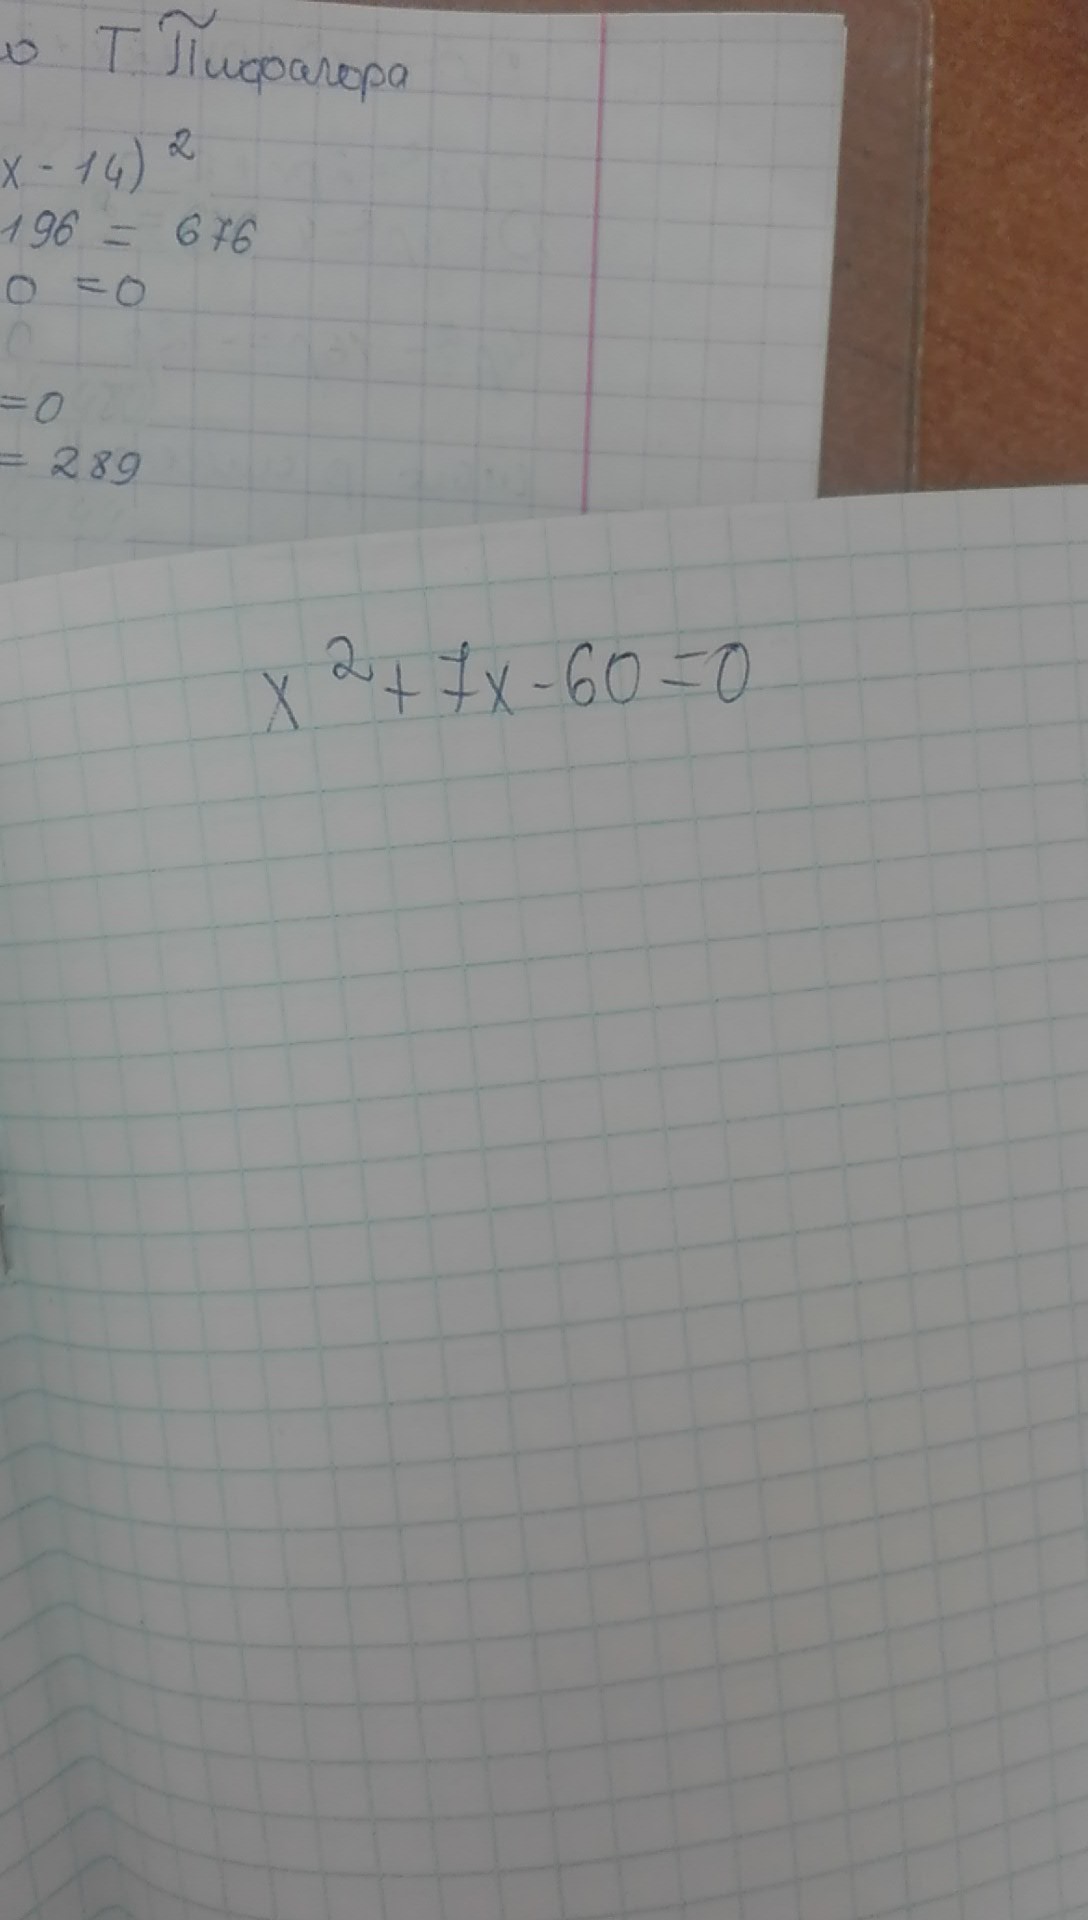 о Т Пифагора
x - 14)²
196 = 676
0 = 0
= 0
= 289
x² + 7x - 60 = 0